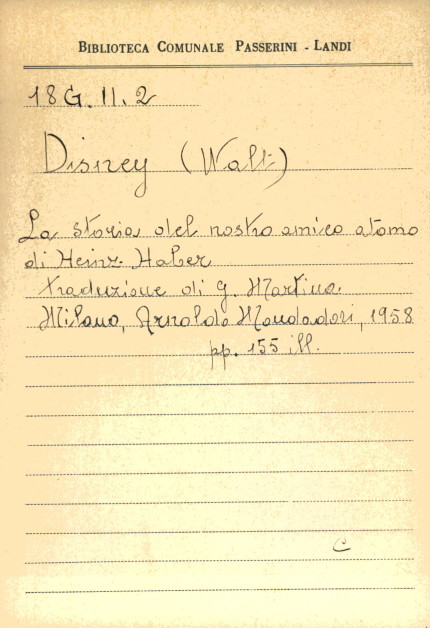 BIBLIOTECA COMUNALE PASSERINI - LANDI
18 G. II. 2
Disney (Walt)
La storia del nostro amico atomo
di Heinz Haber
traduzione di G. Martina
Milano, Arnoldo Mondadori, 1958
pp. 155 ill.
C